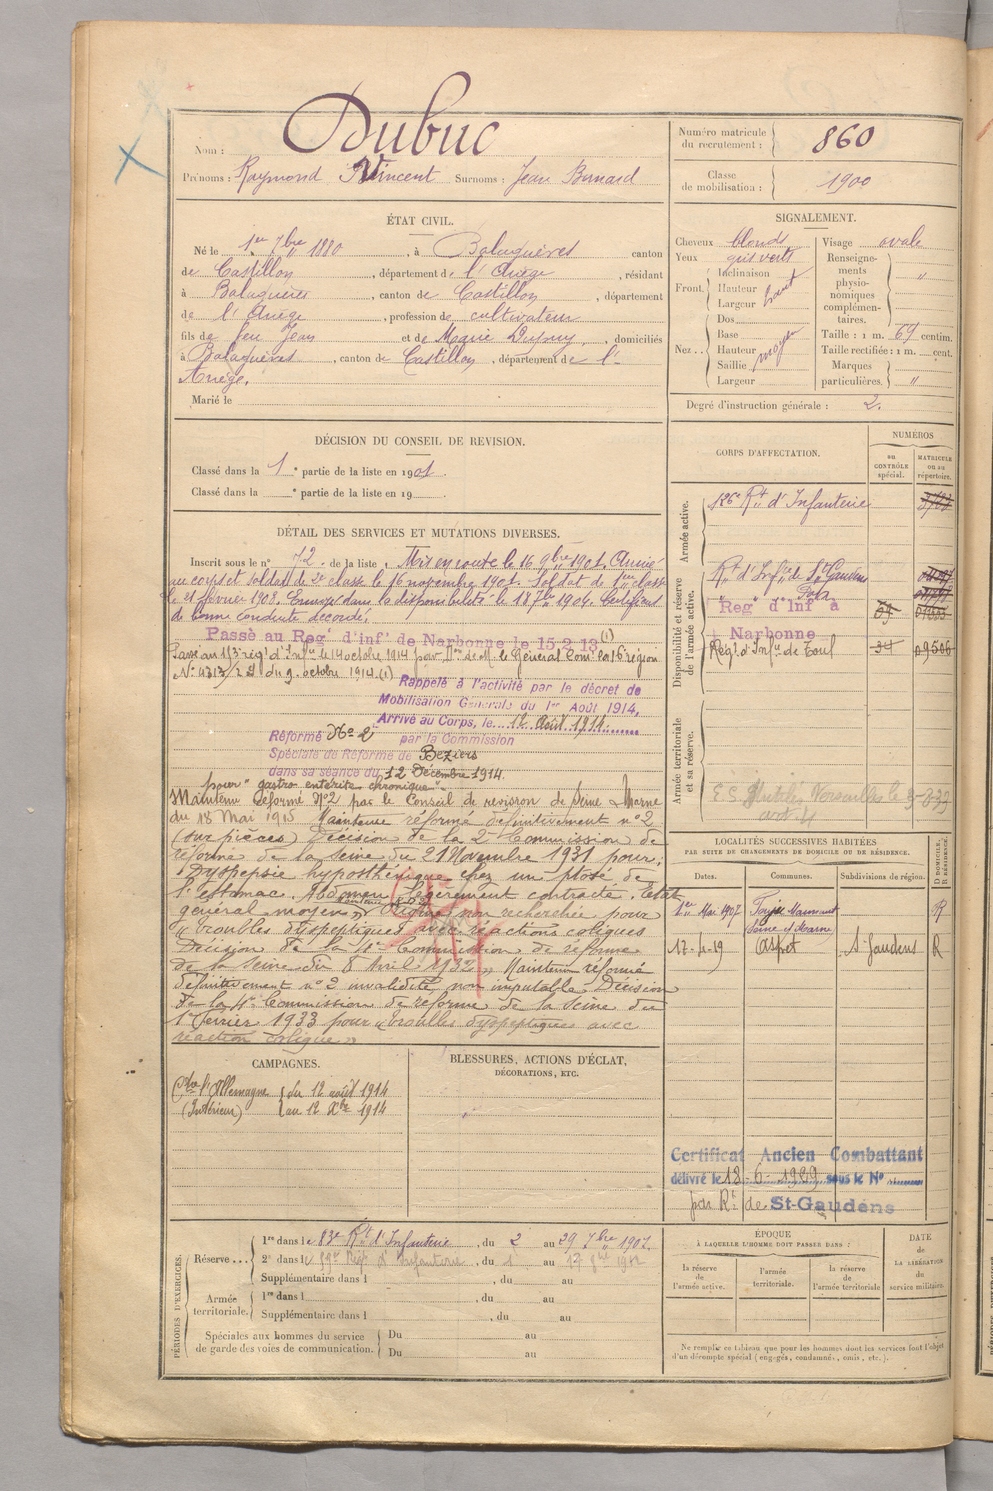 Nom : Dubuc
Prénoms : Raymond Vincent Surnoms : Jean Bernard
Numéro matricule du recrutement : 860
Classe de mobilisation : 1900
ÉTAT CIVIL.
Né le 1er 7bre 1880, à Balaguères canton
de Castillon, département d. l'Ariège, résidant
à Balaguères, canton de Castillon, département
de l'Ariège, profession de cultivateur
fils de feu Jean et de Marie Dupuy, domiciliés
à Balaguères, canton de Castillon, département de l'-
Ariège.
Marié le
SIGNALEMENT.
Cheveux blonds
Yeux gris verts
Front. Inclinaison
Hauteur haut
Largeur
Nez... Dos
Base
Hauteur moyen
Saillie
Largeur
Visage ovale
Renseignements physionomiques complémentaires. "
Taille : 1 m. 69 centim.
Taille rectifiée : 1 m. cent.
Marques particulières. "
Degré d'instruction générale : 2.
DÉCISION DU CONSEIL DE REVISION.
Classé dans la 1 e partie de la liste en 1901.
Classé dans la e partie de la liste en 19
CORPS D'AFFECTATION.
NUMÉROS
au CONTRÔLE spécial.
MATRICULE ou au répertoire.
Armée active.
126e Rt d'Infanterie
Disponibilité et réserve de l'armée active.
Rt d'Infrie de St Gaudens
Reg t d'Inf à
Narbonne
Regt d'Infie de Toul 34 09506
Armée territoriale et sa réserve.
DÉTAIL DES SERVICES ET MUTATIONS DIVERSES.
Inscrit sous le n° 72 de la liste. Mis en route le 16 9bre 1901, Arrivé
au corps et soldat de 2e classe le 16 novembre 1901. Soldat de 1ere classe
le 21 février 1903. Envoyé dans la disponibilité le 18 7bre 1904. Certificat
de bonne conduite accordé.
Passé au Regt d'inf de Narbonne le 15-2-13 (1)
Passé au 113e régt d'Infie le 14 octobre 1914 par de M. le Général Comt la 16e région
N° 4313/2 du 9 octobre 1914. (1)
Rappelé à l'activité par le décret de
Mobilisation Générale du 1er Août 1914,
Arrivé au Corps, le 12 Août 1914
Réformé No 2 par la Commission
Spéciale de Réforme de Béziers
dans sa séance du 12 Décembre 1914.
pour "gastro entérite chronique"
Maintenu Réformé N°2 par le Conseil de revision de Seine & Marne
du 18 Mai 1915 Maintenu réformé définitivement n° 2
(sur pièces) Décision de la 2e Commission de
réforme de la Seine du 21 Novembre 1931 pour :
"Dyspepsie hyposthénique chez un ptosé de
l'estomac. Abdomen légèrement contracté. Etat
général moyen" Origine non recherchée pour
"troubles dyspeptiques avec réactions coliques
Décision de la Commission de réforme
de la Seine du 8 Avril 1932" Maintenu réformé
définitivement n° 2 invalidité non imputable. Décision
de la 4e Commission de réforme de la Seine du
1er Février 1933 pour "troubles dyspeptiques avec
réaction colique"
LOCALITÉS SUCCESSIVES HABITÉES
PAR SUITE DE CHANGEMENTS DE DOMICILE OU DE RÉSIDENCE.
Dates. Communes. Subdivisions de région. D DOMICILE, R RÉSIDENCE.
1er Mai 1907 Seine et Marne R
17-4-19 Aspet St Gaudens R
CAMPAGNES.
Contre l'Allemagne du 12 août 1914
(Intérieur) au 12 Xbre 1914
BLESSURES, ACTIONS D'ÉCLAT,
DÉCORATIONS, ETC.
Certificat Ancien Combattant
délivré le 18-6-1929 sous le No
par Rt de St-Gaudens
PÉRIODES D'EXERCICES.
Réserve... 1re dans le 83e Rt d'Infanterie, du 2 au 29 7bre 1907.
2e dans l d'Infanterie, du 1 au
Supplémentaire dans l , du au
Armée territoriale. 1re dans l , du au
Supplémentaire dans l , du au
Spéciales aux hommes du service de garde des voies de communication. Du au
Du au
ÉPOQUE
À LAQUELLE L'HOMME DOIT PASSER DANS :
la réserve de l'armée active.
l'armée territoriale.
la réserve de l'armée territoriale
DATE de LA LIBÉRATION du service militaire.
Ne remplir ce tableau que pour les hommes dont les services font l'objet
d'un décompte spécial (engagés, condamnés, omis, etc.).